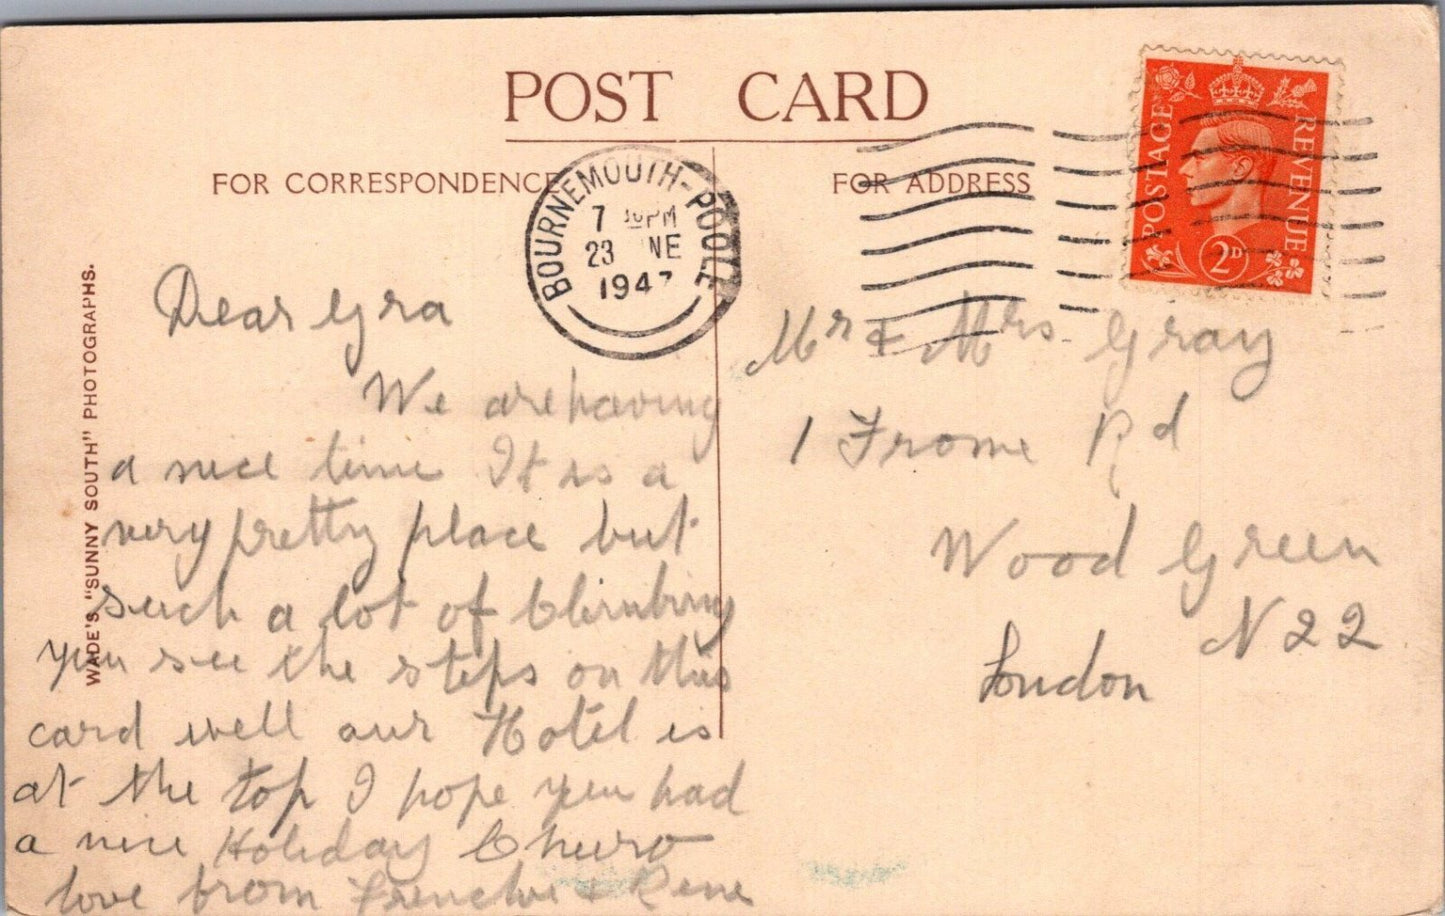 POST CARD
FOR CORRESPONDENCE
FOR ADDRESS
BOURNEMOUTH-POOLE
7 PM
23 NE
1947
POSTAGE
REVENUE
2D
WADE'S "SUNNY SOUTH" PHOTOGRAPHS.
Dear Gra
We are having
a nice time It is a
very pretty place but
such a lot of Climbing
you see the steps on this
card well our Hotel is
at the top I hope you had
a nice Holiday Cheero
love from & Rene
Mr & Mrs. Gray
1 Frome Rd
Wood Green
N22
London